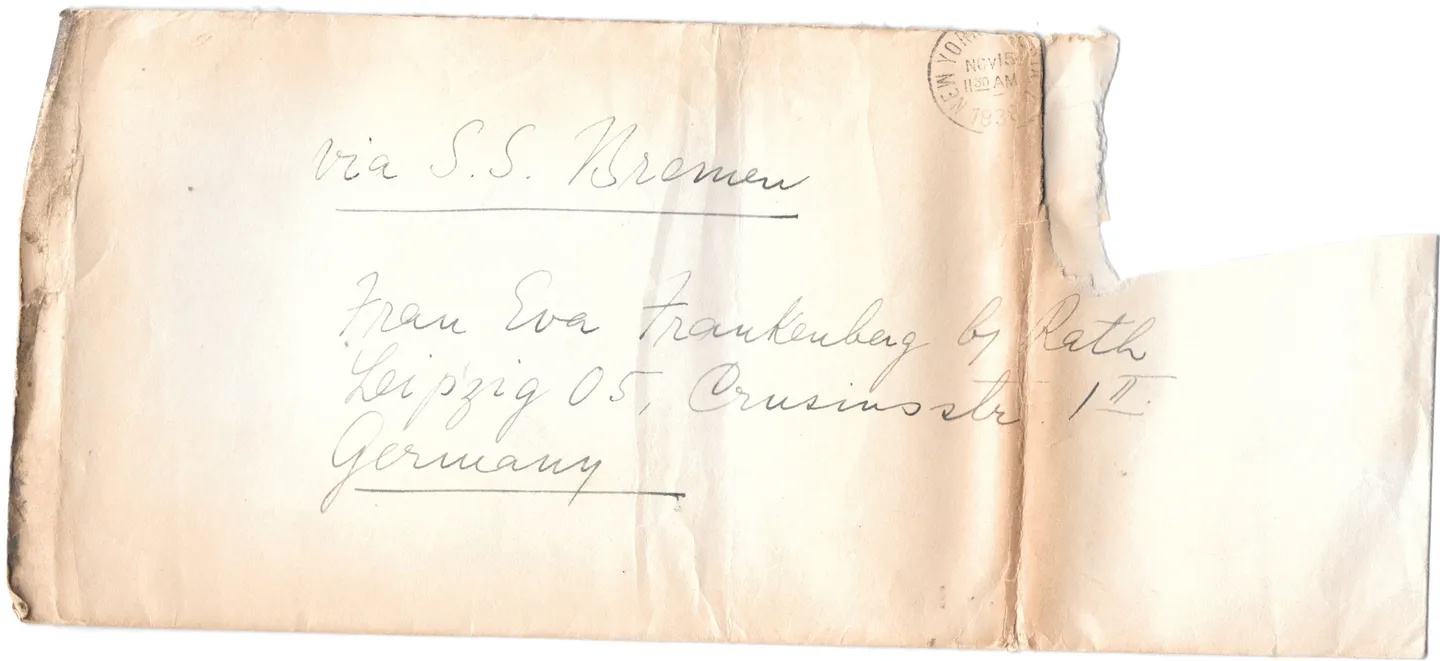 NEW YORK
NOV 15
11 30 AM
via S.S. Bremen
Frau Eva Frankenberg by Rath
Leipzig O5, Crusiusstr. 1 II.
Germany